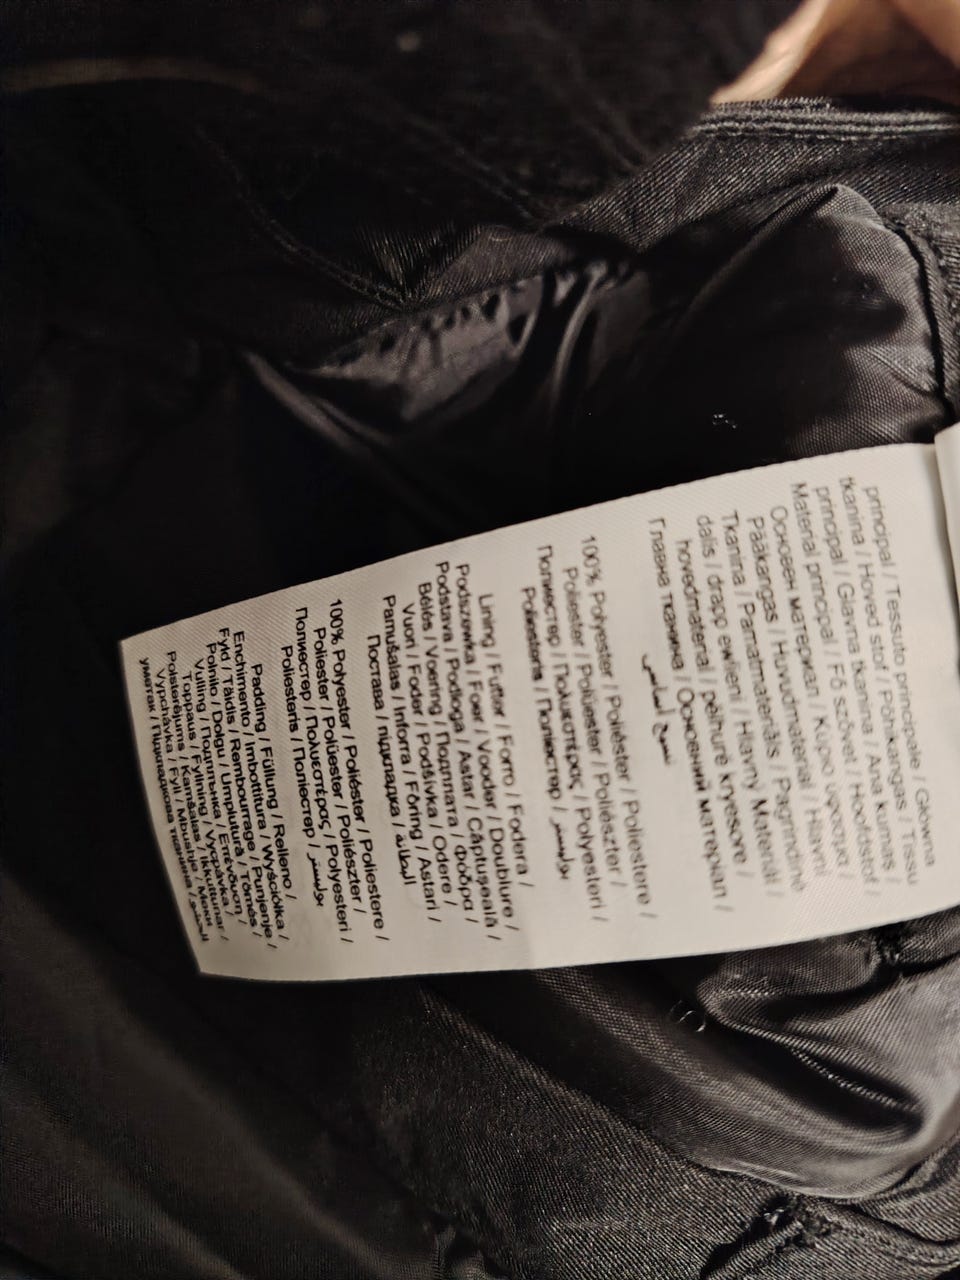 principal / Tessuto principale / Główna
tkanina / Hoved stof / Põhikangas / Tissu
principal / Glavna tkanina / Ana kumaş /
Material principal / Fő szövet / Hoofdstof /
Основен материал / Κύριο ύφασμα /
Pääkangas / Huvudmaterial / Hlavní
Tkanina / Pamatmateriāls / Pagrindinė
dalis / drapp ewlieni / Hlavný Materiál /
hovedmaterial / pëlhurë kryesore /
Главна ткаина / Основний матеріал /
نسيج أساسي
100% Polyester / Poliéster / Poliestere /
Poliester / Polüester / Poliészter /
Полиестер / Πολυεστέρας / Polyesteri /
Poliesteris / Поліестер / بوليستر
Lining / Futter / Forro / Fodera /
Podszewka / Foer / Vooder / Doublure /
Podstava / Podloga / Astar / Căptușeală /
Bélés / Voering / Подплата / Φόδρα /
Vuori / Foder / Podšívka / Odere /
Pamušalas / Inforra / Fôring / Astari /
Постава / підкладка / البطانة
100% Polyester / Poliéster / Poliestere /
Poliester / Polüester / Poliészter /
Полиестер / Πολυεστέρας / Polyesteri /
Poliesteris / Поліестер / بوليستر
Padding / Füllung / Relleno /
Enchimento / Imbottitura / Wyściółka /
Fyld / Täidis / Rembourrage / Punjenje /
Polnilo / Dolgu / Umplutură / Tömés /
Vulling / Подплънка / Επένδυση /
Toppaus / Fyllning / Vycpávka /
Polsterējums / Kamšalas / Ikkuttunar /
Vypchávka / Fyll / Mbushje / Меки
уметак / Підкладкова тканина /